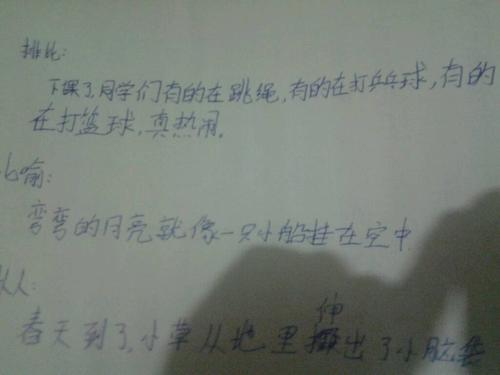 排比:
下课了,同学们有的在跳绳,有的在打乒乓球,有的
在打篮球,真热闹。
比喻:
弯弯的月亮就像一只小船挂在空中
人:
伸
春天到了,小草从地里出了小脑袋